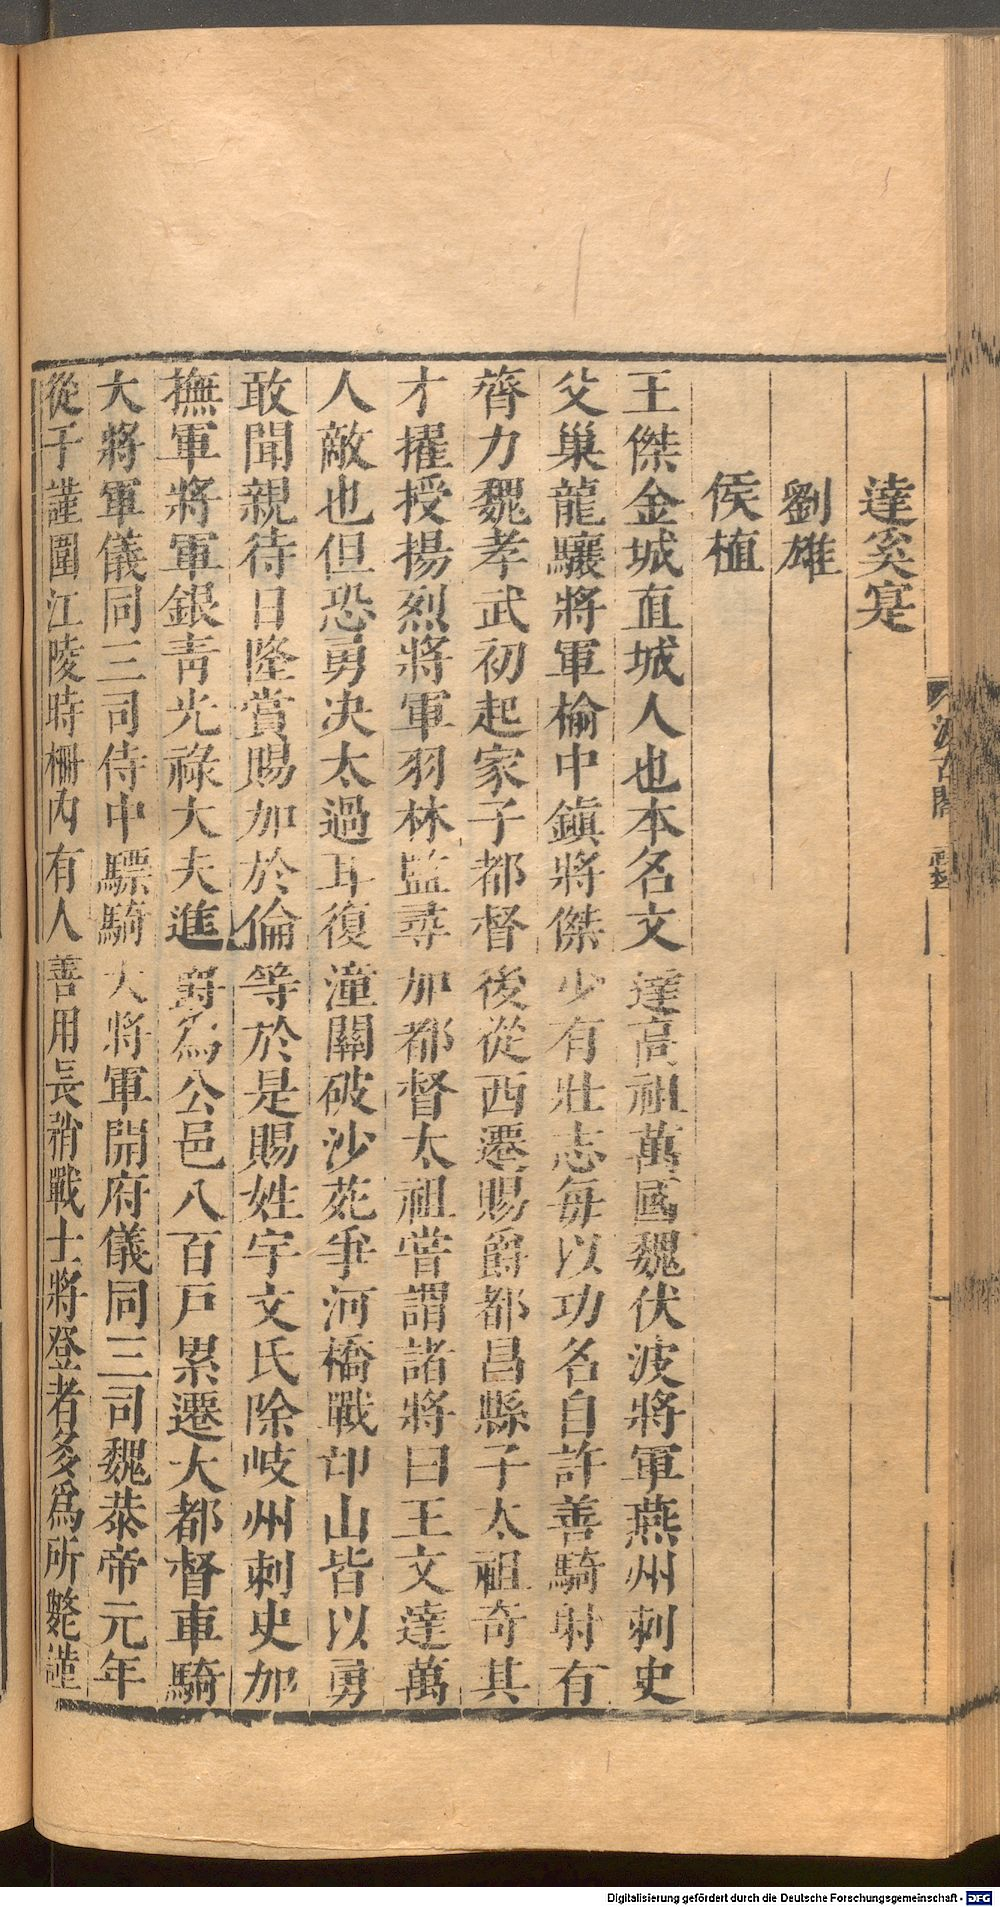 達奚寔
劉雄
侯植
王傑金城直城人也本名文達高祖萬國魏伏波將軍燕州刺史
父巢龍驤將軍榆中鎭將傑少有壯志每以功名自許善騎射有
膂力魏孝武初起家子都督後從西遷賜爵都昌縣子太祖奇其
才擢授揚烈將軍羽林監尋加都督太祖嘗謂諸將曰王文達萬
人敵也但恐勇决太過耳復潼關破沙苑爭河橋戰邙山皆以勇
敢聞親待日隆賞賜加於倫等於是賜姓宇文氏除岐州刺史加
撫軍將軍銀靑光祿大夫進爵爲公邑八百戸累遷大都督車騎
大將軍儀同三司侍中驃騎大將軍開府儀同三司魏恭帝元年
從于謹圍江陵時柵內有人善用長矟戰士將登者多爲所斃謹
汲古閣
Digitalisierung gefördert durch die Deutsche Forschungsgemeinschaft - DFG